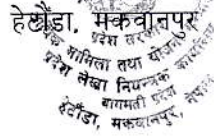 हेटौंडा, मकवानपुर
प्रदेश सरकार
मामिला तथा योजना
प्रदेश लेखा नियन्त्रक कार्यालय
बागमती प्रदेश
हेटौंडा, मकवानपुर, नेपाल